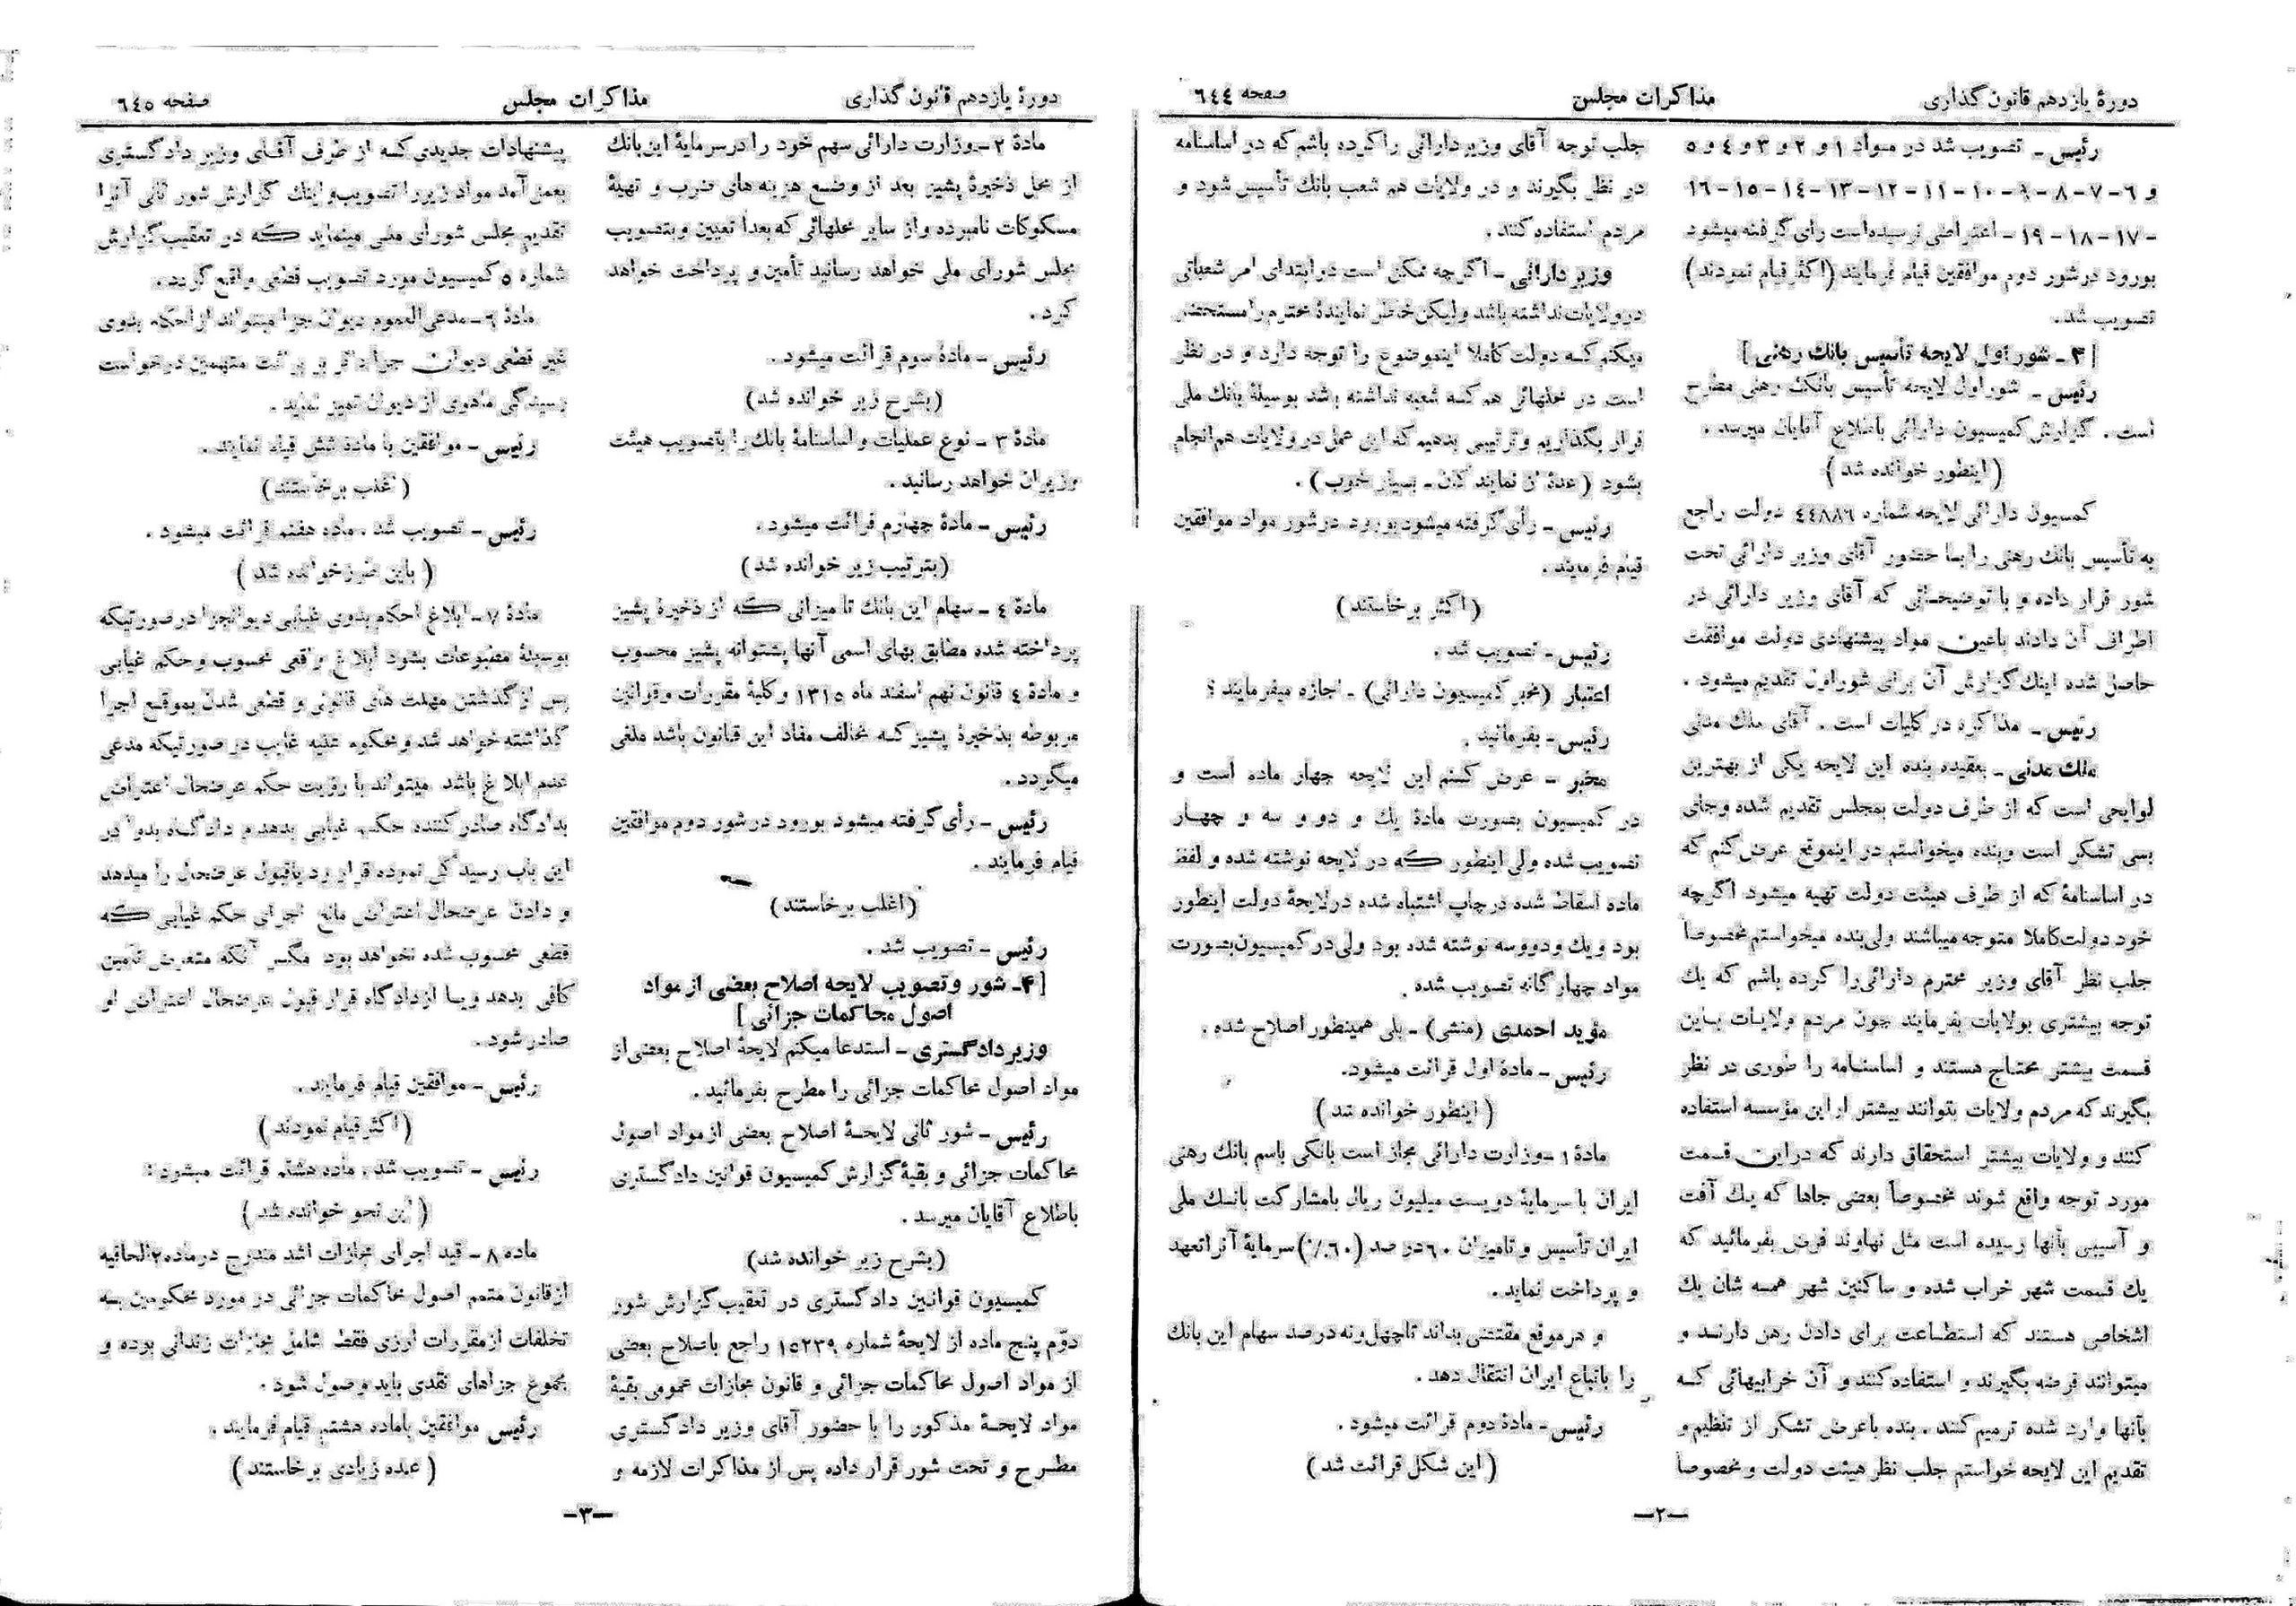 دورهٔ یازدهم قانون گذاری
مذاکرات مجلس
صفحه ٦٤٤
رئیس ـ تصویب شد در مواد ۱ و ۲ و ۳ و ٤ و ٥
و ٦ - ۷ - ۸ - ۹ - ۱۰ - ۱۱ - ۱۲ - ۱۳ - ۱٤ - ۱٥ - ۱٦
- ۱۷ - ۱۸ - ۱۹ - اعتراضی نرسیده است رأی گرفته میشود
بورود در شور دوم موافقین قیام فرمایند (اکثر قیام نمودند)
تصویب شد.
[ ۳ ـ شور اول لایحه تأسیس بانک رهنی ]
رئیس ـ شور اول لایحه تأسیس بانک رهنی مطرح
است . گزارش کمیسیون دارائی باطلاع آقایان میرسد .
( اینطور خوانده شد )
کمسیون دارائی لایحه شماره ٤٤٨٨٦ دولت راجع
به تأسیس بانک رهنی را با حضور آقای وزیر دارائی تحت
شور قرار داده و با توضیحاتی که آقای وزیر دارائی در
اطراف آن دادند باعین مواد پیشنهادی دولت موافقت
حاصل شده اینك گزارش آن برای شور اول تقدیم میشود .
رئیس ـ مذاکره در کلیات است . آقای ملك مدنی
ملك مدنی ـ بعقیده بنده این لایحه یکی از بهترین
لوایحی است که از طرف دولت بمجلس تقدیم شده وجای
بسی تشکر است وبنده میخواستم در اینموقع عرض کنم که
در اساسنامهٔ که از طرف هیئت دولت تهیه میشود اگرچه
خود دولت کاملا متوجه میباشند ولی بنده میخواستم مخصوصاً
جلب نظر آقای وزیر محترم دارائی را کرده باشم که یك
توجه بیشتری بولایات بفرمایند چون مردم ولایات باین
قسمت بیشتر محتاج هستند و اساسنامه را طوری در نظر
بگیرند که مردم ولایات بتوانند بیشتر از این مؤسسه استفاده
کنند و ولایات بیشتر استحقاق دارند که در این قسمت
مورد توجه واقع شوند مخصوصاً بعضی جاها که یك آفت
و آسیبی بآنها رسیده است مثل نهاوند فرض بفرمائید که
یك قسمت شهر خراب شده و ساکنین شهر همه شان یك
اشخاصی هستند که استطاعت برای دادن رهن دارند و
میتوانند قرضه بگیرند و استفاده کنند و آن خرابیهائی که
بآنها وارد شده ترمیم کنند . بنده باعرض تشکر از تنظیم و
تقدیم این لایحه خواستم جلب نظر هیئت دولت و مخصوصاً
جلب توجه آقای وزیر دارائی را کرده باشم که در اساسنامه
در نظر بگیرند و در ولایات هم شعب بانك تأسیس شود و
مردم استفاده کنند .
وزیر دارائی ـ اگرچه ممکن است در ابتدای امر شعباتی
در ولایات نداشته باشد ولیکن خاطر نمایندهٔ محترم را مستحضر
میکنم که دولت کاملا اینموضوع را توجه دارد و در نظر
است در محلهائی هم که شعبه نداشته باشد بوسیلهٔ بانك ملی
قرار بگذاریم و ترتیبی بدهیم که این عمل در ولایات هم انجام
بشود ( عدهٔ از نمایندگان ـ بسیار خوب ) .
رئیس ـ رأی گرفته میشود بورود در شور مواد موافقین
قیام فرمایند .
( اکثر برخاستند )
رئیس ـ تصویب شد .
اعتبار (مخبر کمیسیون دارائی) ـ اجازه میفرمایند ؟
رئیس ـ بفرمائید .
مخبر ـ عرض کنم این لایحه چهار ماده است و
در کمیسیون بصورت مادهٔ یك و دو و سه و چهار
تصویب شده ولی اینطور که در لایحه نوشته شده و لفظ
ماده اسقاط شده در چاپ اشتباه شده در لایحهٔ دولت اینطور
بود و یك و دو و سه نوشته شده بود ولی در کمیسیون بصورت
مواد چهار گانه تصویب شده .
مؤید احمدی (منشی) ـ بلی همینطور اصلاح شده .
رئیس ـ مادهٔ اول قرائت میشود.
( اینطور خوانده شد )
مادهٔ ۱ ـ وزارت دارائی مجاز است بانکی باسم بانك رهنی
ایران با سرمایهٔ دویست میلیون ریال بامشارکت بانك ملی
ایران تأسیس و تامیزان ٦۰ در صد (٦۰٪) سرمایهٔ آنرا تعهد
و پرداخت نماید .
و هر موقع مقتضی بداند تا چهل و نه درصد سهام این بانك
را باتباع ایران انتقال دهد .
رئیس ـ مادهٔ دوم قرائت میشود .
( این شکل قرائت شد )
ـ۲ـ
دورهٔ یازدهم قانون گذاری
مذاکرات مجلس
صفحه ٦٤٥
مادهٔ ۲ ـ وزارت دارائی سهم خود را در سرمایهٔ این بانك
از محل ذخیرهٔ پشیز بعد از وضع هزینه های ضرب و تهیهٔ
مسکوکات نامبرده و از سایر محلهائی که بعداً تعیین و بتصویب
مجلس شورای ملی خواهد رسانید تأمین و پرداخت خواهد
کرد .
رئیس ـ مادهٔ سوم قرائت میشود .
(بشرح زیر خوانده شد)
مادهٔ ۳ ـ نوع عملیات و اساسنامهٔ بانك را بتصویب هیئت
وزیران خواهد رسانید .
رئیس ـ مادهٔ چهارم قرائت میشود .
(بترتیب زیر خوانده شد )
مادهٔ ٤ ـ سهام این بانك تا میزانی که از ذخیرهٔ پشیز
پرداخته شده مطابق بهای اسمی آنها پشتوانه پشیز محسوب
و مادهٔ ٤ قانون نهم اسفند ماه ۱۳۱٥ و کلیهٔ مقررات وقوانین
مربوطه بذخیرهٔ پشیز که مخالف مفاد این قانون باشد ملغی
میگردد .
رئیس ـ رأی گرفته میشود بورود در شور دوم موافقین
قیام فرمایند .
(اغلب برخاستند)
رئیس ـ تصویب شد .
[ ۴ـ شور و تصویب لایحه اصلاح بعضی از مواد
اصول محاکمات جزائی ]
وزیر دادگستری ـ استدعا میکنم لایحهٔ اصلاح بعضی از
مواد اصول محاکمات جزائی را مطرح بفرمائید .
رئیس ـ شور ثانی لایحهٔ اصلاح بعضی از مواد اصول
محاکمات جزائی و بقیهٔ گزارش کمیسیون قوانین دادگستری
باطلاع آقایان میرسد .
(بشرح زیر خوانده شد)
کمیسیون قوانین دادگستری در تعقیب گزارش شور
دوّم پنج ماده از لایحهٔ شماره ۱٥۲۳۹ راجع باصلاح بعضی
از مواد اصول محاکمات جزائی و قانون مجازات عمومی بقیهٔ
مواد لایحهٔ مذکور را با حضور آقای وزیر دادگستری
مطرح و تحت شور قرار داده پس از مذاکرات لازمه و
پیشنهادات جدیدی که از طرف آقای وزیر دادگستری
بعمل آمد مواد زیر را تصویب و اینك گزارش شور ثانی آنرا
تقدیم مجلس شورای ملی مینماید که در تعقیب گزارش
شماره ٥ کمیسیون مورد تصویب قطعی واقع گردد.
مادهٔ ٦ ـ مدعی العموم دیوان جزا میتواند از احکام بدوی
غیر قطعی دیوان جزا دائر بر برائت متهمین درخواست
رسیدگی ماهوی از دیوان تمیز نماید .
رئیس ـ موافقین با مادهٔ شش قیام نمایند .
( اغلب برخاستند)
رئیس ـ تصویب شد . ماده هفتم قرائت میشود .
( باین طرز خوانده شد )
مادهٔ ۷ ـ ابلاغ احکام بدوی غیابی دیوانجزا در صورتیکه
بوسیلهٔ مطبوعات بشود ابلاغ واقعی محسوب و حکم غیابی
پس از گذشتن مهلت های قانونی و قطعی شدن بموقع اجرا
گذاشته خواهد شد و محکوم علیه غایب در صورتیکه مدعی
عدم ابلاغ باشد میتواند با رؤیت حکم عرضحال اعتراض
بدادگاه صادر کننده حکم غیابی بدهد و دادگاه بدواً در
این باب رسیدگی نموده قرار رد یا قبول عرضحال را میدهد
و دادن عرضحال اعتراض مانع اجرای حکم غیابی که
قطعی محسوب شده نخواهد بود مگر آنکه متعرض تأمین
کافی بدهد و یا از دادگاه قرار قبول عرضحال اعتراض او
صادر شود .
رئیس ـ موافقین قیام فرمایند .
( اکثر قیام نمودند )
رئیس ـ تصویب شد . ماده هشتم قرائت میشود :
( این نحو خوانده شد )
ماده ۸ ـ قید اجرای مجازات اشد مندرج در ماده ۲ الحاقیه
از قانون متمم اصول محاکمات جزائی در مورد محکومین به
تخلفات از مقررات ارزی فقط شامل مجازات زندانی بوده و
مجموع جزاهای نقدی باید وصول شود .
رئیس موافقین باماده هشتم قیام فرمایند .
( عده زیادی برخاستند )
ـ۳ـ